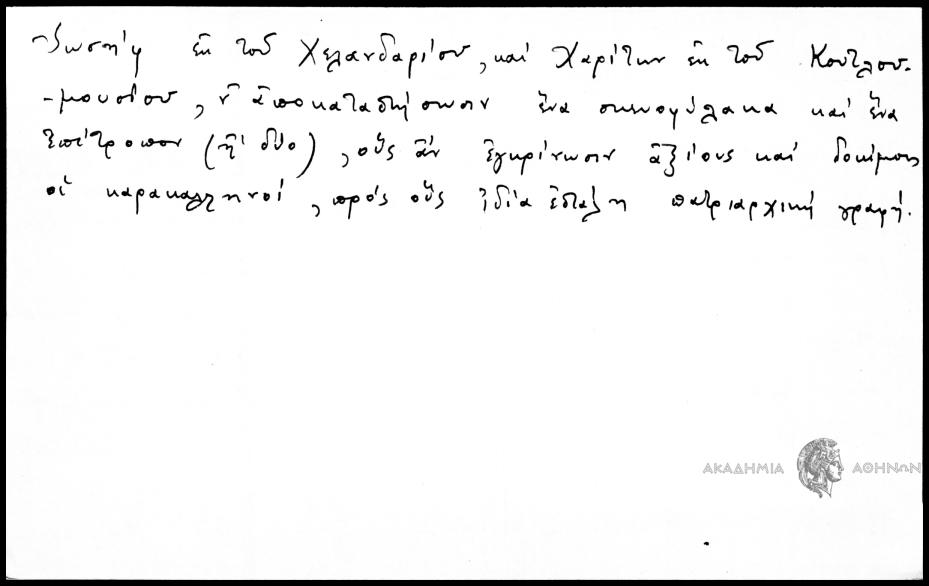 Ἰωσήφ ἐκ τοῦ Χελανδαρίου, καί Χαρίτων ἐκ τοῦ Κουτλου-
-μουσίου, ν' ἀποκαταστήσωσιν ἕνα σκευοφύλακα καί ἕνα
ἐπίτροπον (ἤ δύο), οὕς ἄν ἐγκρίνωσιν ἀξίους καί δοκίμους
οἱ καρακαλληνοί, πρός οὕς ἰδία ἐστάλη πατριαρχική γραφή.
ΑΚΑΔΗΜΙΑ ΑΘΗΝΩΝ